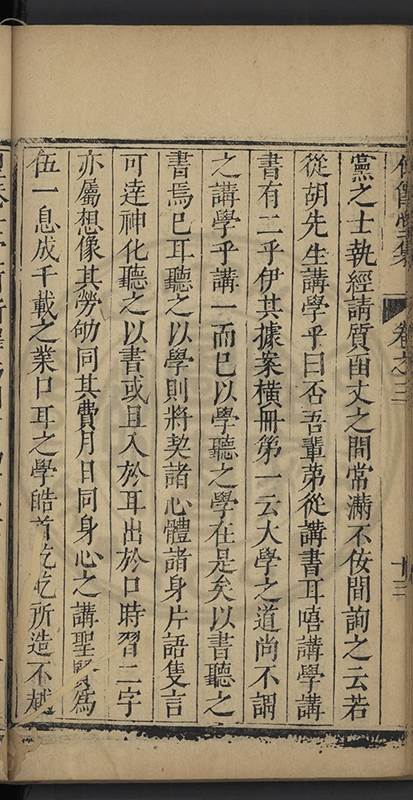 黨之士執經請質函丈之間常滿不佞間詢之云若
從胡先生講學乎曰否吾輩苐從講書耳嘻講學講
書有二乎伊其據案橫冊第一云大學之道尚不謂
之講學乎講一而已以學聽之學在是矣以書聽之
書焉已耳聽之以學則將契諸心體諸身片語隻言
可逹神化聽之以書或且入於耳出於口時習二字
亦屬想像其勞劬同其費月日同身心之講聖賢為
伍一息成千載之業口耳之學皓首矻矻所造不
堂集 卷之三